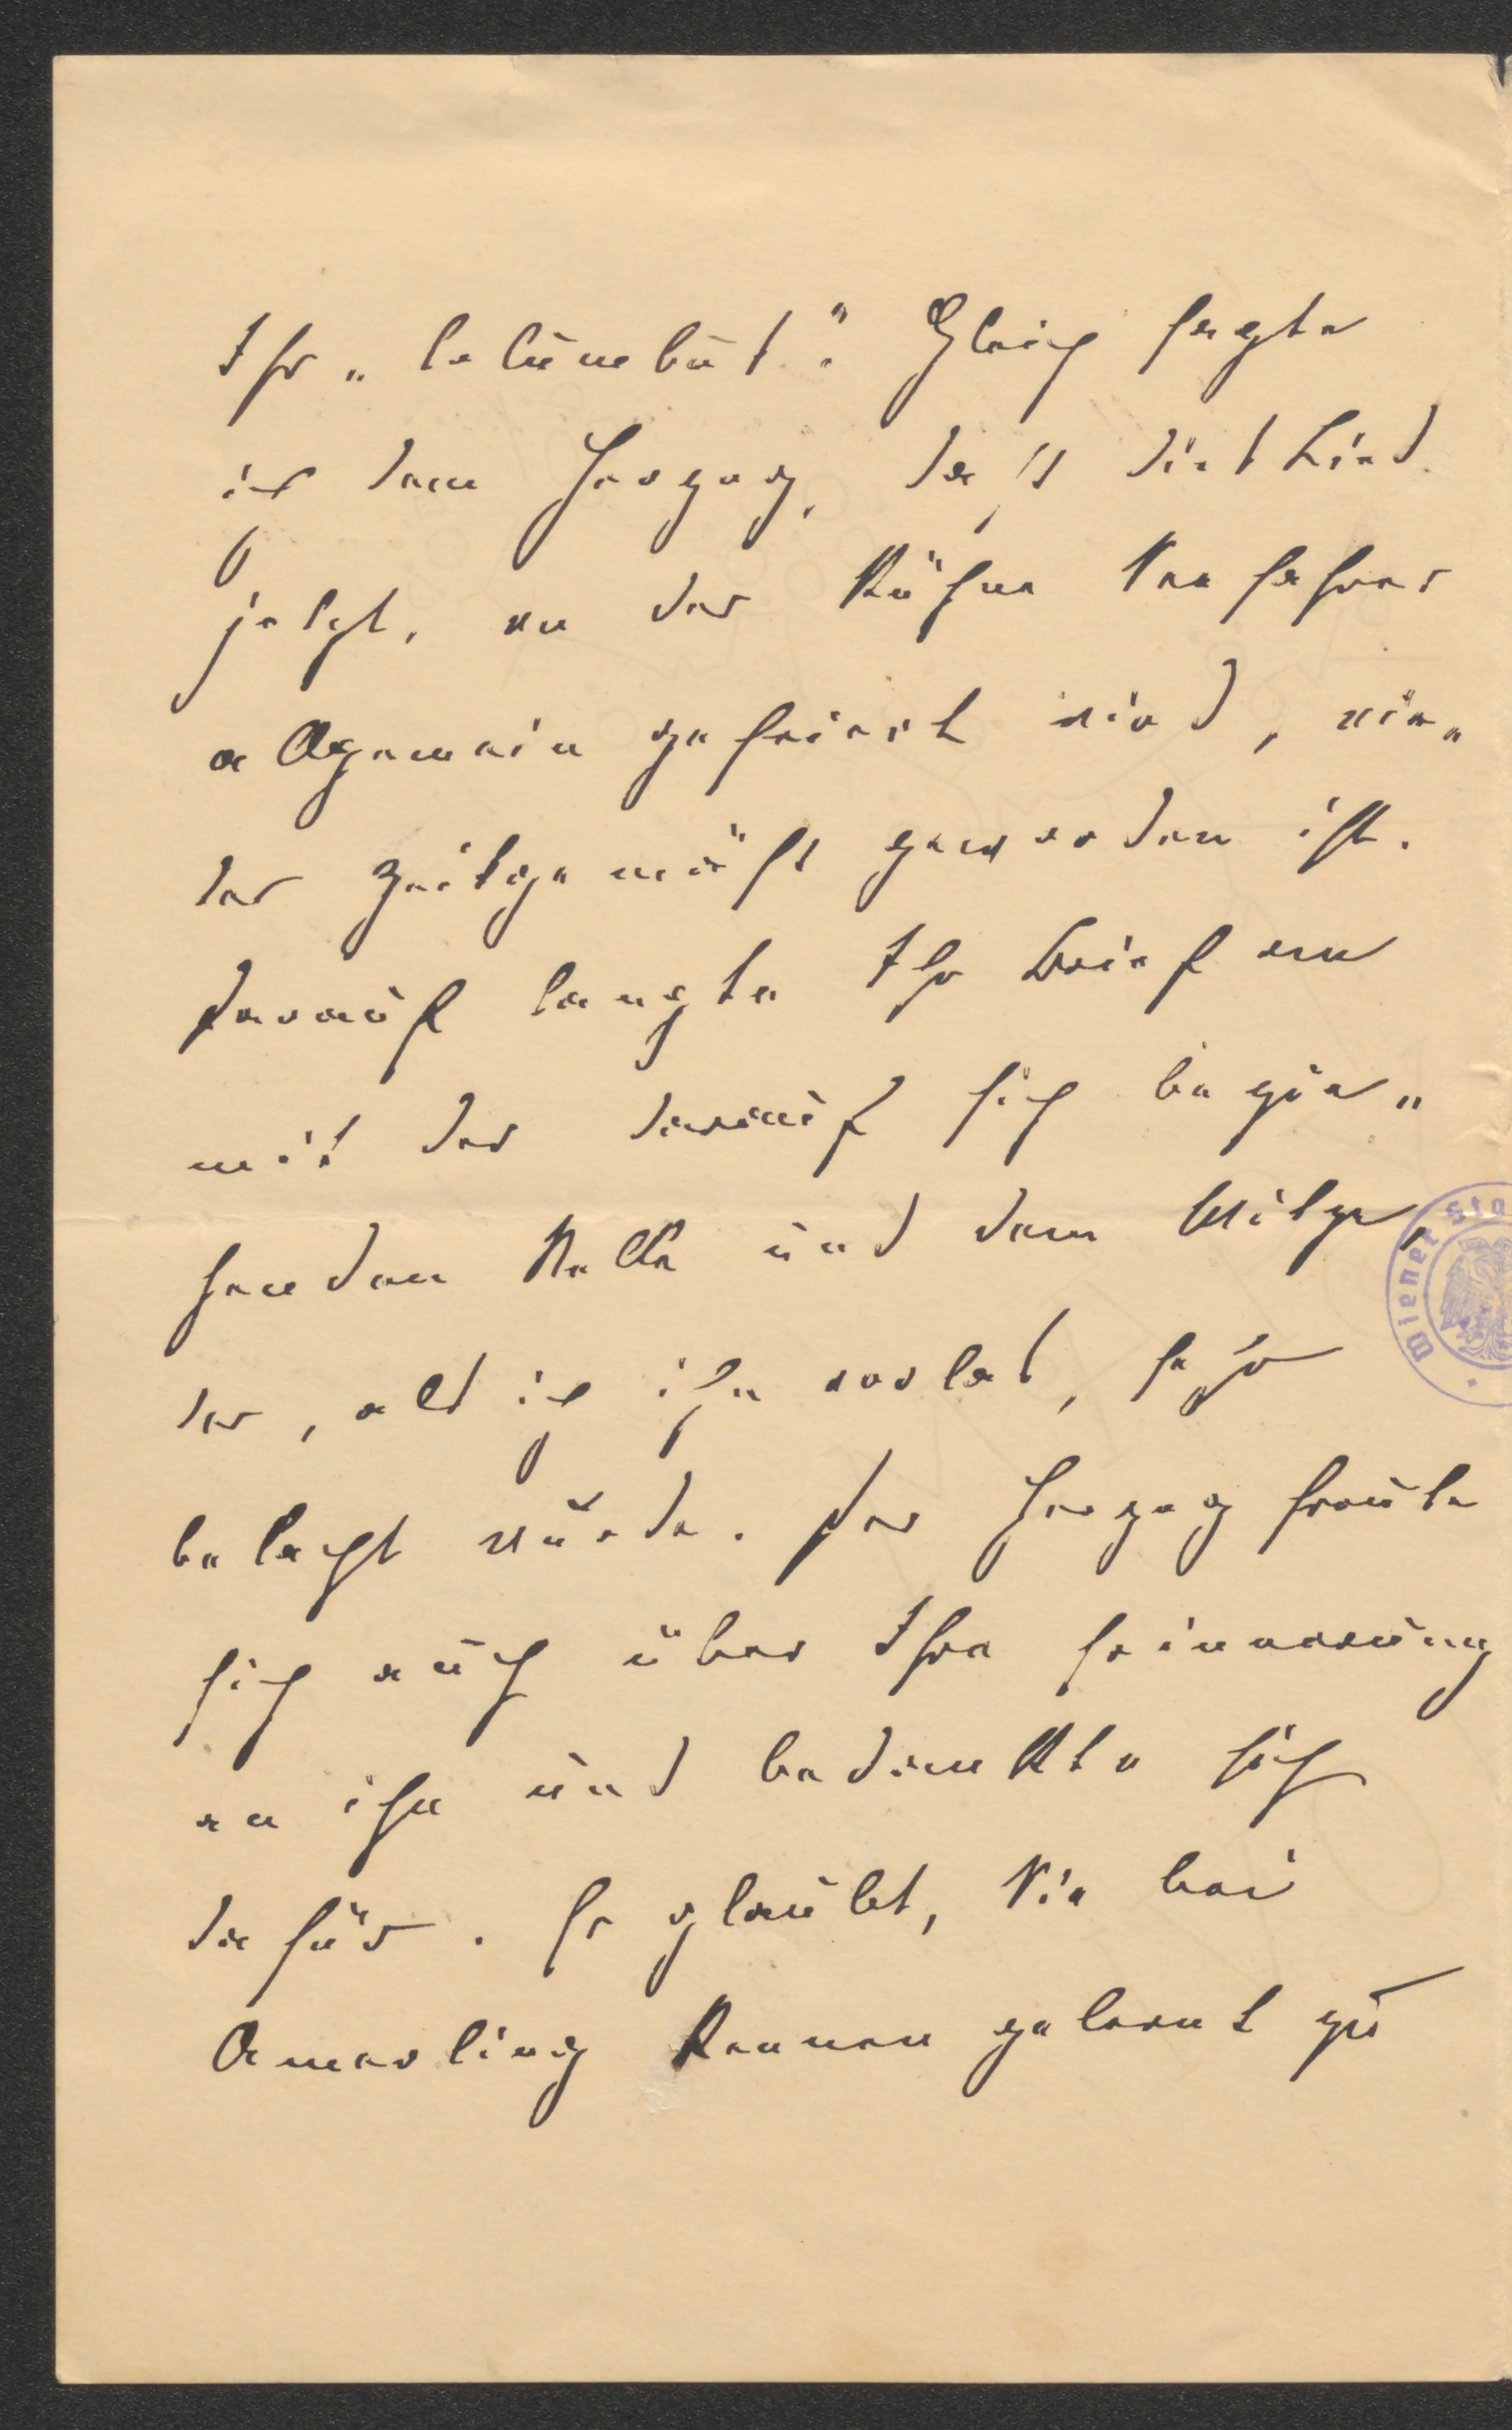 Ihr „le lüne büt". Gleich sagte
ich dem Herzog, daß dies Lied
jetzt, wo der kühne Seefahrer
allgemein gefeiert wird, wie„
der zeitgemäß geworden ist.
Darauf langte Ihr Brief an
mit der darauf sich bezie„
henden Stelle und dem Witze,
der, als ich ihn vorlas, sehr
belacht wurde. Der Herzog freute
sich auch über Ihre Erinnerung
an ihn und bedankte sich
dafür. Er glaubt, Sie bei
Amerling kennen gelernt zu
Wiener Sta